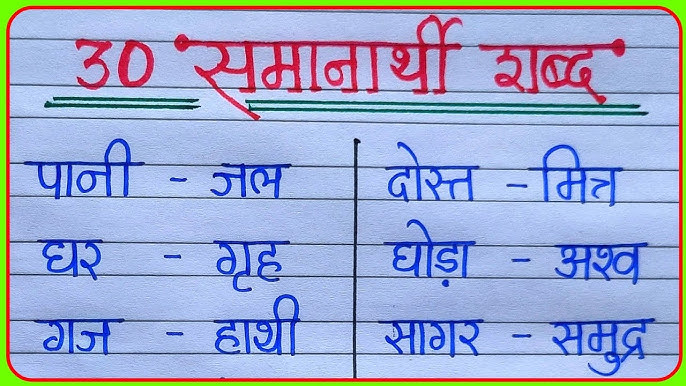 30 समानार्थी शब्द
पानी - जल
घर - गृह
गज - हाथी
दोस्त - मित्र
घोड़ा - अश्व
सागर - समुद्र